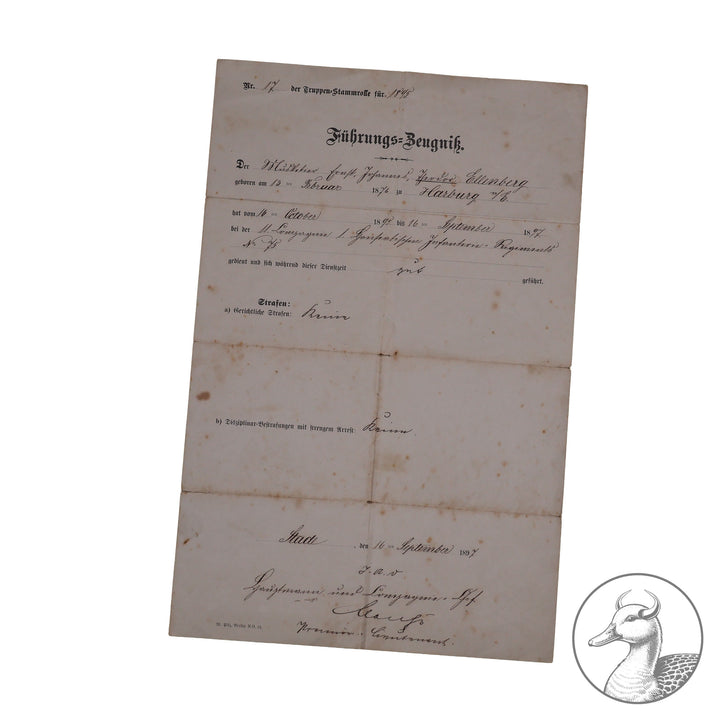 Nr. 17 der Truppen-Stammrolle für 1895
Führungs-Zeugniß.
Der Musketier Ernst, Johannes, Theodor Ellenberg
geboren am 13ten Februar 1874 zu Harburg a/E.
hat vom 14ten October 1895 bis 16ten September 1897
bei der 11. Compagnie 1. Hanseatischen Infanterie-Regiments
No 75
gedient und sich während dieser Dienstzeit gut geführt.
Strafen:
a) Gerichtliche Strafen: Keine
b) Disziplinar-Bestrafungen mit strengem Arrest: Keine.
Stade, den 16ten September 1897
Hauptmann und Compagnie-Chef
Premier-Lieutenant.